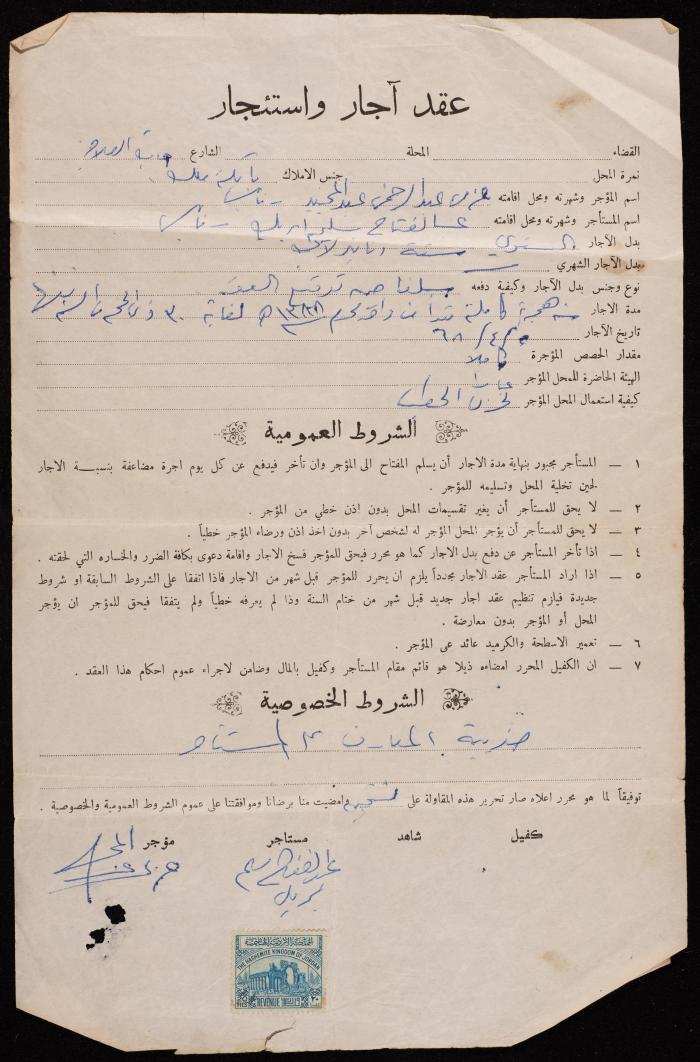 عقد آجار واستئجار
القضاء المحلة الشارع
نمرة المحل جنس الاملاك
اسم المؤجر وشهرته ومحل اقامته عبد الرحمن عبد المجيد
اسم المستأجر وشهرته ومحل اقامته عبد الفتاح سليم
بدل الآجار السنوي ستة دنانير
بدل الآجار الشهري
نوع وجنس بدل الآجار وكيفية دفعه
مدة الاجار سنة هجرية كاملة ١٣٨٨ هـ لغاية ٣٠ ذي الحجة
تاريخ الآجار ٥/٤/٦٨
مقدار الحصص المؤجرة كاملا
الهيئة الحاضرة للمحل المؤجر
كيفية استعمال المحل المؤجر
الشروط العمومية
١ — المستأجر مجبور بنهاية مدة الاجار أن يسلم المفتاح الى المؤجر وان تأخر فيدفع عن كل يوم اجرة مضاعفة بنسبة الاجار
لحين تخلية المحل وتسليمه للمؤجر .
٢ — لا يحق للمستأجر أن يغير تقسيمات المحل بدون اذن خطي من المؤجر .
٣ — لا يحق للمستأجر أن يؤجر المحل المؤجر له لشخص آخر بدون اخذ اذن ورضاء المؤجر خطياً .
٤ — اذا تأخر المستأجر عن دفع بدل الاجار كما هو محرر فيحق للمؤجر فسخ الاجار واقامة دعوى بكافة الضرر والخساره التي لحقته .
٥ — اذا اراد المستأجر عقد الاجار مجدداً يلزم ان يحرر للمؤجر قبل شهر من الاجار فاذا اتفقا على الشروط السابقة او شروط
جديدة فيلزم تنظيم عقد اجار جديد قبل شهر من ختام السنة وذا لم يعرفه خطياً ولم يتفقا فيحق للمؤجر ان يؤجر
المحل أو المؤجر بدون معارضة .
٦ — تعمير الاسطحة والكرميد عائد عى المؤجر .
٧ — ان الكفيل المحرر امضاءه ذيلا هو قائم مقام المستأجر وكفيل بالمال وضامن لاجراء عموم احكام هذا العقد .
الشروط الخصوصية
ضريبة المعارف على المستأجر
توفيقاً لما هو محرر اعلاه صار تحرير هذه المقاولة على وامضيت منا برضانا وموافقتنا على عموم الشروط العمومية والخصوصية .
كفيل شاهد مستاجر مؤجر
عبد الفتاح سليم
المملكة الاردنية الهاشمية
THE HASHEMITE KINGDOM OF JORDAN
REVENUE